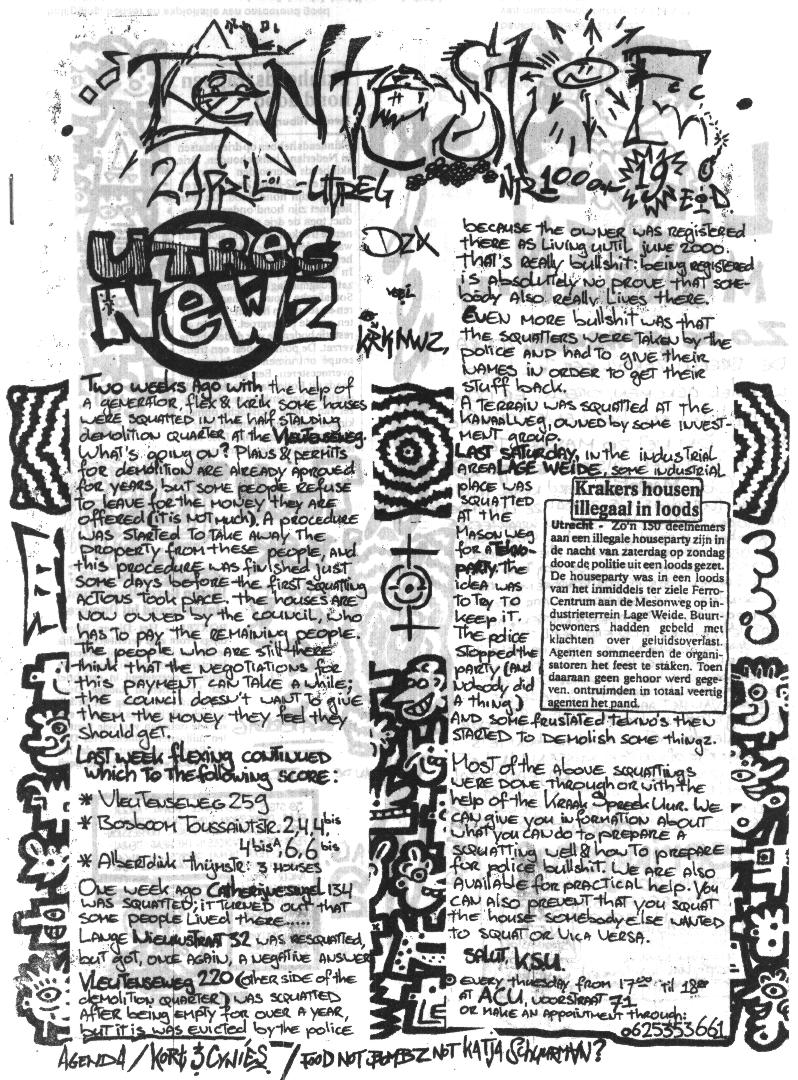 2 APRIL '01 - UTREG NR. 1000 19
UTREG
NEWZ
KRKNWZ,
Two weeks Ago with the help of
A generator, flex & krik some houses
were squatted in the half standing
demolition quarter at the Vleutenseweg.
What's going on? Plans & permits
for demolition are already aproved
for years, but some people refuse
to leave for the money they are
offered (it is not much). A procedure
was started to take away the
property from these people, and
this procedure was finished just
some days before the first squatting
actions took place. The houses are
now owned by the council, who
has to pay the remaining people.
The people who are still there
think that the negotiations for
this payment can take a while;
the council doesn't want to give
them the money they feel they
should get.
Last week flexing continued
which to the following score:
* Vleutenseweg 259
* Bosboom Toussaintstr. 2,4,4bis
4bisA, 6,6bis
* Alberdink Thijmstr: 3 houses
One week ago Catherijnesingel 134
was squatted; it turned out that
some people lived there.....
Lange Nieuwstraat 32 was resquatted,
but got, once again, a negative answer
Vleutenseweg 220 (other side of the
demolition quarter) was squatted
after being empty for over a year,
but it is was evicted by the police
because the owner was registered
there as living until june 2000.
that's really bullshit: being registered
is absolutely no prove that some-
body also really lives there.
Even more bullshit was that
the squatters were taken by the
police and had to give their
names in order to get their
stuff back.
A terrain was squatted at the
Kanaalweg, owned by some invest-
ment group.
Last saturday, in the industrial
area Lage Weide, some industrial
place was
squatted
at the
Masonweg
for a Tekno-
party. The
idea was
to try to
keep it.
The police
stopped the
party (and
nobody did
a thing)
Krakers housen
illegaal in loods
Utrecht - Zo'n 150 deelnemers
aan een illegale houseparty zijn in
de nacht van zaterdag op zondag
door de politie uit een loods gezet.
De houseparty was in een loods
van het inmiddels ter ziele Ferro-
Centrum aan de Mesonweg op in-
dustrieterrein Lage Weide. Buurt-
bewoners hadden gebeld met
klachten over geluidsoverlast.
Agenten sommeerden de organi-
satoren het feest te staken. Toen
daaraan geen gehoor werd gege-
ven, ontruimden in totaal veertig
agenten het pand.
and some frustated tekno's then
started to demolish some thingz.
Most of the above squattings
were done through or with the
help of the Kraak Spreek Uur. We
can give you information about
what you can do to prepare a
squatting well & how to prepare
for police bullshit. We are also
available for practical help. You
can also prevent that you squat
the house somebody else wanted
to squat or vica versa.
Salut, K.S.U.
every thursday from 17:00 til 18:00
at ACU, voorstraat 71
or make an appointment through:
0625353661
AGENDA / KORT & CYNIES / FOOD NOT BOMBZ NOT KATJA SCHUURMAN?